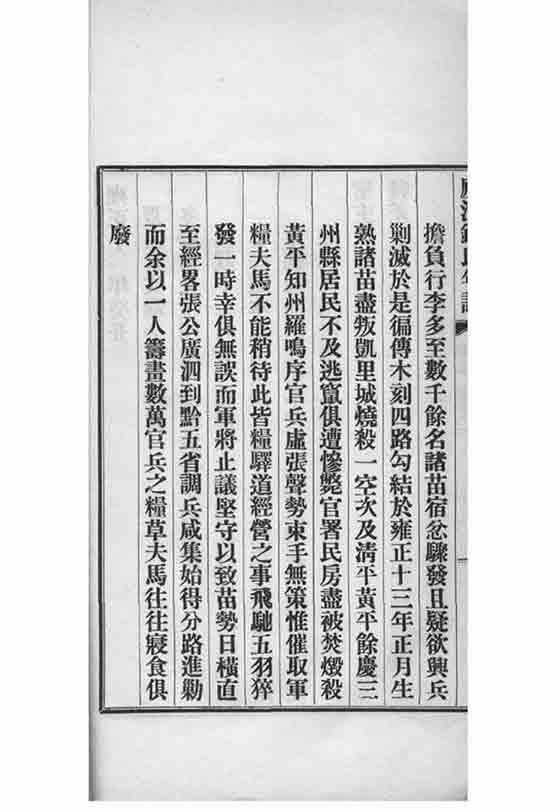 擔負行李多至數千餘名諸苗宿忿驟發且疑欲興兵
剿滅於是徧傳木刻四路勾結於雍正十三年正月生
熟諸苗盡叛凱里城燒殺一空次及清平黃平餘慶三
州縣居民不及逃竄俱遭慘斃官署民房盡被焚燬殺
黃平知州羅鳴序官兵虛張聲勢束手無策惟催取軍
糧夫馬不能稍待此皆糧驛道經營之事飛馳五羽猝
發一時幸俱無誤而軍將止議堅守以致苗勢日橫直
至經畧張公廣泗到黔五省調兵咸集始得分路進勦
而余以一人籌畫數萬官兵之糧草夫馬往往寢食俱
廢